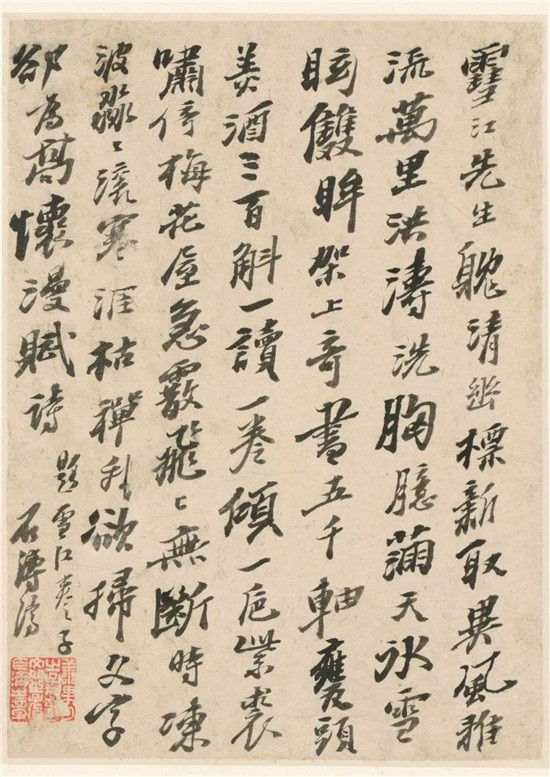 雪江先生躭清幽標新取異風雅
流萬里洪濤洗胸臆滿天冰雪
眩雙眸架上奇書五千軸甕頭
美酒三百斛一讀一卷傾一卮紫裘
嘯倚梅花屋急霰飛〻無斷時凍
波淼〻滾寒涯枯禪我欲掃文字
卻為高懷漫賦詩 題雪江卷子
石濤濟